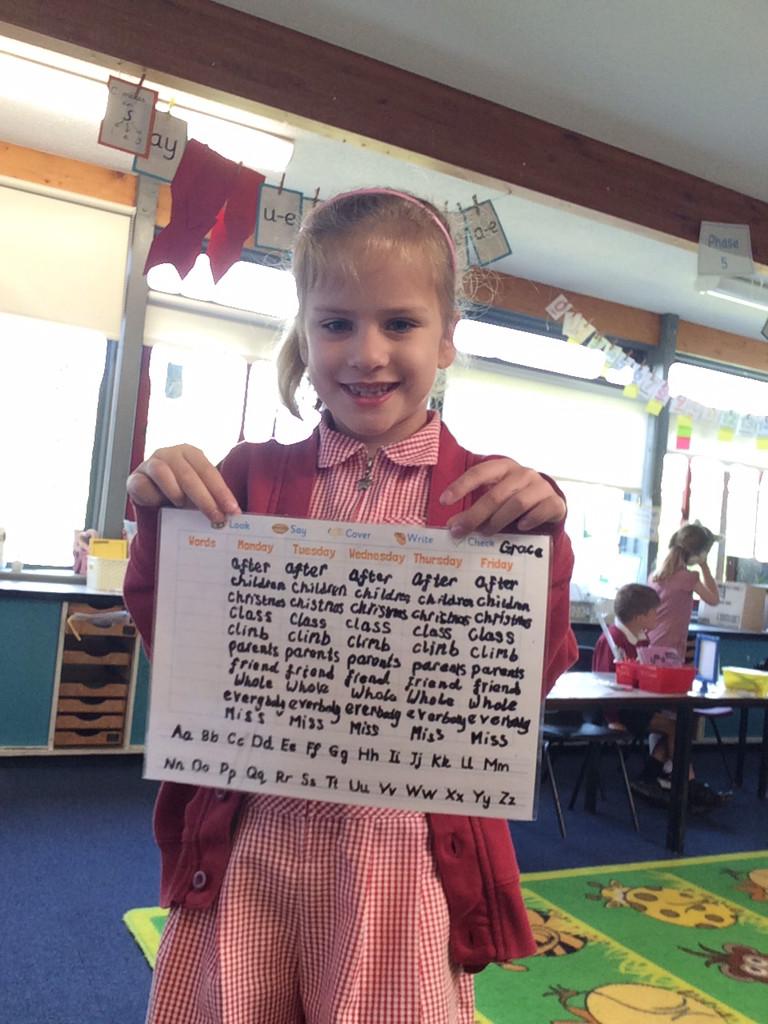 ay
u-e
a-e
Phase
5
Look Say Cover Write Check Grace
Words Monday Tuesday Wednesday Thursday Friday
after after after after after
children children childres children children
christmas chistmas christmas christmas christmas
class class class class class
climb climb climb climb climb
parents parents parents parents parents
friend friend friend friend friend
whole whole whole whole whole
everybody everbody everbody everbody everbody
Miss Miss Miss Miss Miss
Aa Bb Cc Dd Ee Ff Gg Hh Ii Jj Kk Ll Mm
Nn Oo Pp Qq Rr Ss Tt Uu Vv Ww Xx Yy Zz